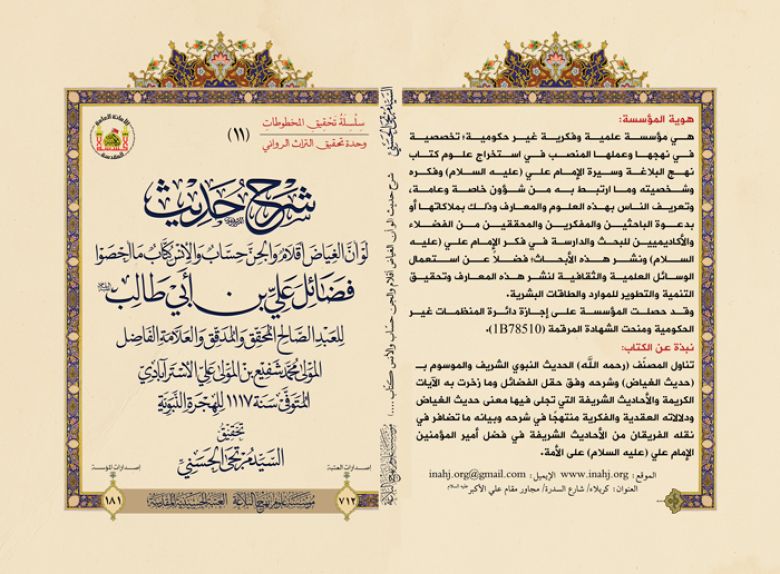 سلسلة تحقيق المخطوطات
(١١)
وحدة تحقيق التراث الروائي
شرح حديث
لو أن الغياض أقلام والجن حساب والإنس كتاب ما احصوا
فضائل علي بن أبي طالب
للعبد الصالح المحقق والمدقق والعلامة الفاضل
المولى محمد شفيع بن المولى علي الاسترآبادي
المتوفى سنة ١١١٧ للهجرة النبوية
تحقيق
السيد مرتضى الحسني
إصدارات العتبة
إصدارات المؤسسة
٧١٢
مؤسسة علوم نهج البلاغة
العتبة الحسينية المقدسة
١٨١
هوية المؤسسة:
هي مؤسسة علمية وفكرية غير حكومية؛ تخصصية
في نهجها وعملها المنصب في استخراج علوم كتاب
نهج البلاغة وسيرة الإمام علي (عليه السلام) وفكره
وشخصيته وما ارتبط به من شؤون خاصة وعامة،
وتعريف الناس بهذه العلوم والمعارف وذلك بملاكاتها أو
بدعوة الباحثين والمفكرين والمحققين من الفضلاء
والأكاديميين للبحث والدارسة في فكر الإمام علي (عليه
السلام) ونشر هذه الأبحاث؛ فضلاً عن استعمال
الوسائل العلمية والثقافية لنشر هذه المعارف وتحقيق
التنمية والتطوير للموارد والطاقات البشرية.
وقد حصلت المؤسسة على إجازة دائرة المنظمات غير
الحكومية ومنحت الشهادة المرقمة (1B78510).
نبذة عن الكتاب:
تناول المصنّف (رحمه الله) الحديث النبوي الشريف والموسوم بـ
(حديث الغياض) وشرحه وفق حقل الفضائل وما زخرت به الآيات
الكريمة والأحاديث الشريفة التي تجلى فيها معنى حديث الغياض
ودلالاته العقدية والفكرية منتهجًا في شرحه وبيانه ما تضافر في
نقله الفريقان من الأحاديث الشريفة في فضل أمير المؤمنين
الإمام علي (عليه السلام) على الأمة.
الموقع: www.inahj.org الإيميل: inahj.org@gmail.com
العنوان: كربلاء/ شارع السدرة/ مجاور مقام علي الأكبر عليه السلام